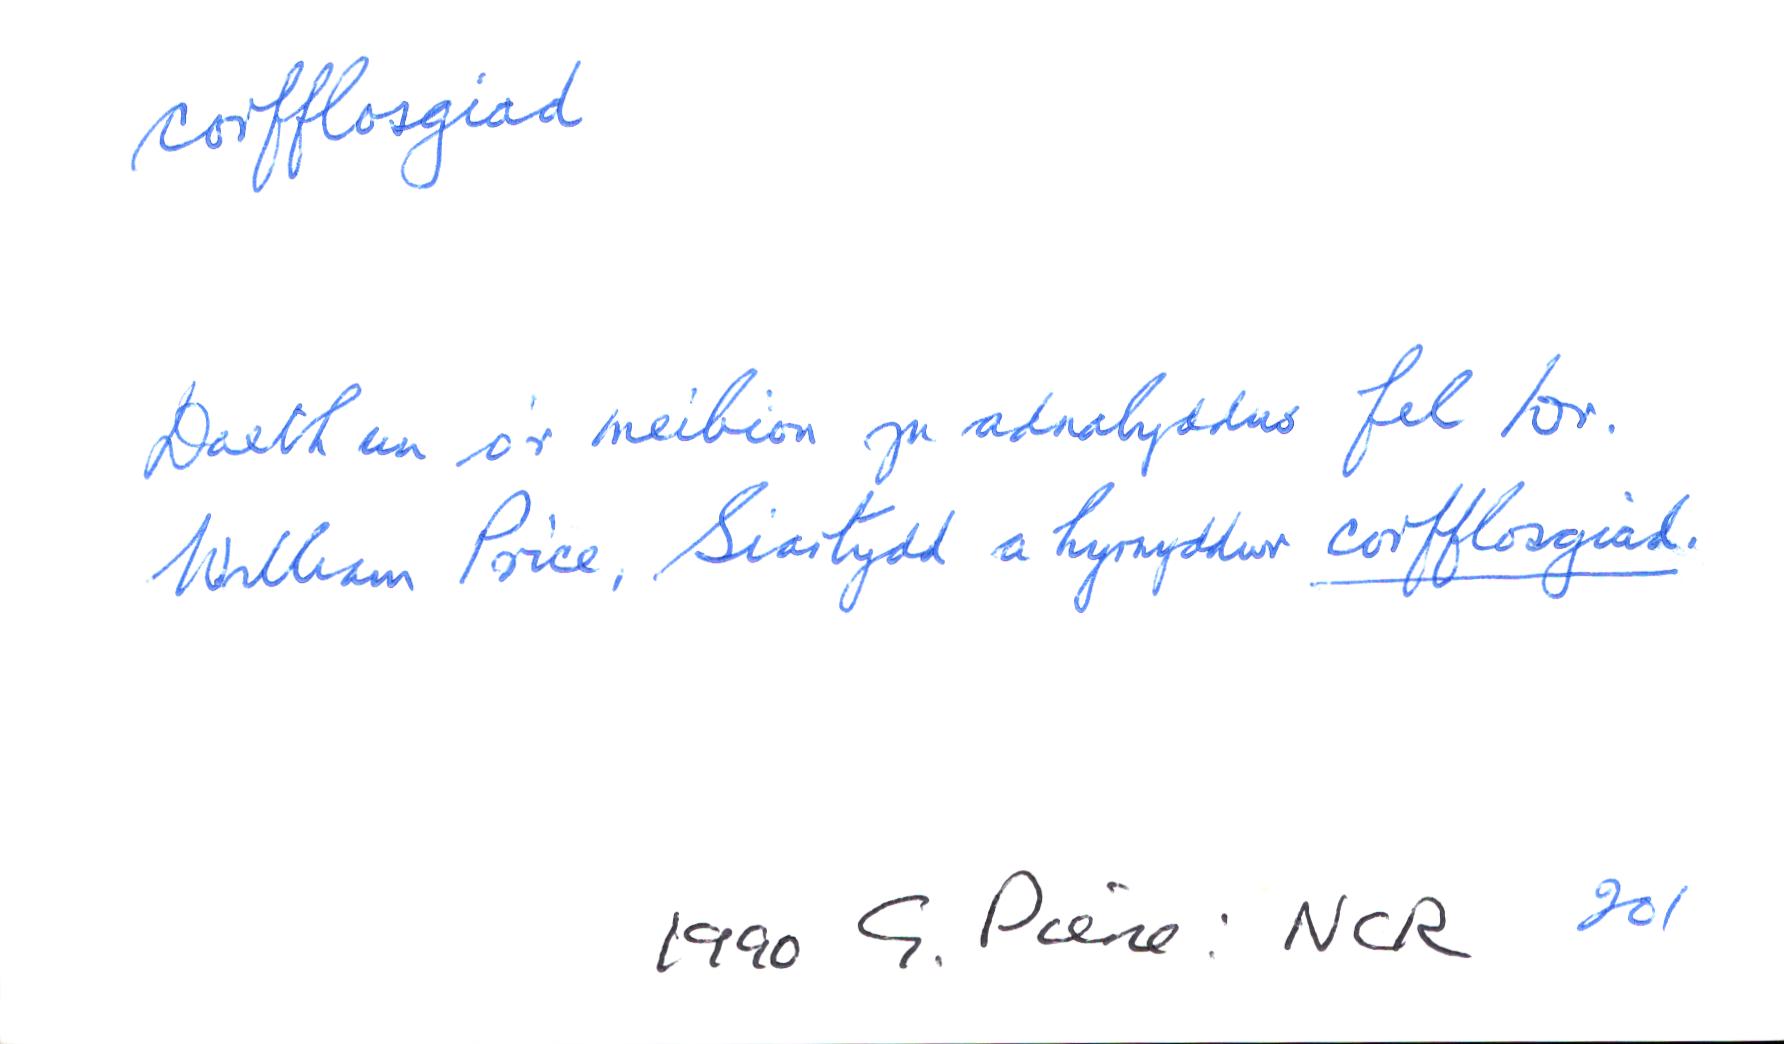 corfflosgiad
Daeth un o'r meibion yn adnabyddus fel Dr.
William Price, Siartydd a hyrwyddwr corfflosgiad.
1990 G. Pierce: NCR 201